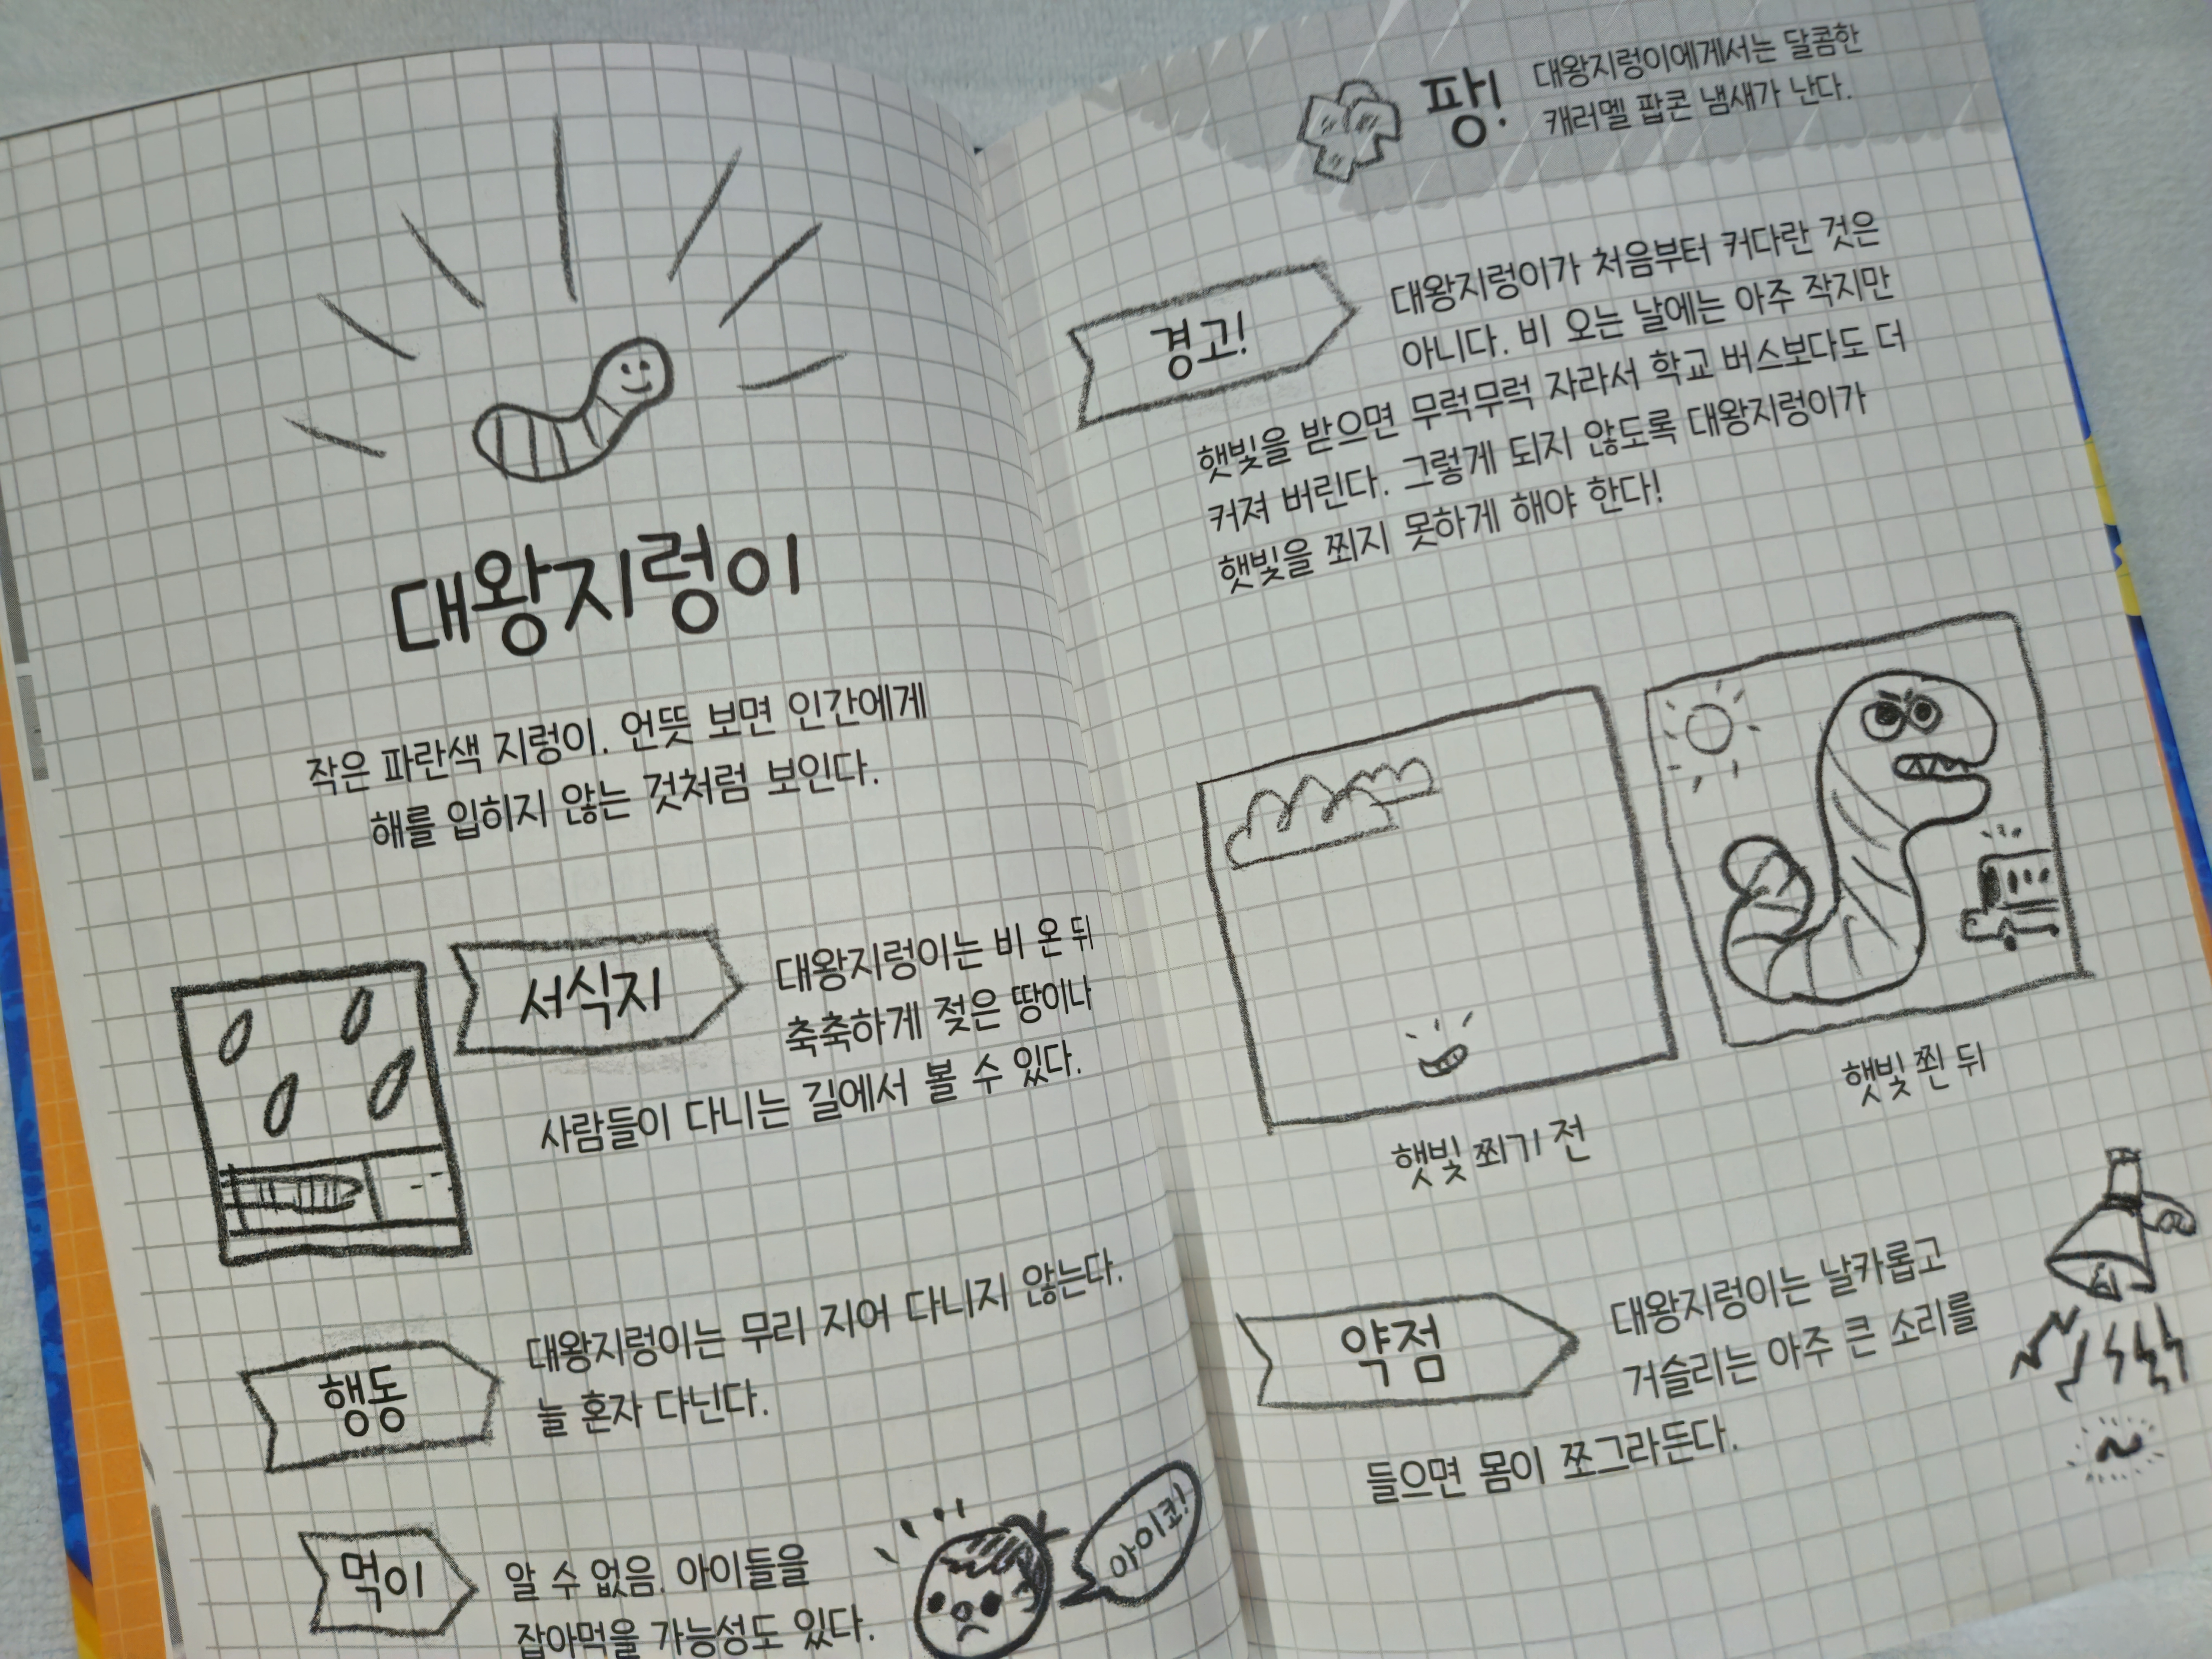 대왕지렁이
작은 파란색 지렁이. 언뜻 보면 인간에게
해를 입히지 않는 것처럼 보인다.
서식지
대왕지렁이는 비 온 뒤
축축하게 젖은 땅이나
사람들이 다니는 길에서 볼 수 있다.
행동
대왕지렁이는 무리 지어 다니지 않는다.
늘 혼자 다닌다.
먹이
알 수 없음. 아이들을
잡아먹을 가능성도 있다.
아이코!
팡!
대왕지렁이에게서는 달콤한
캐러멜 팝콘 냄새가 난다.
경고!
대왕지렁이가 처음부터 커다란 것은
아니다. 비 오는 날에는 아주 작지만
햇빛을 받으면 무럭무럭 자라서 학교 버스보다도 더
커져 버린다. 그렇게 되지 않도록 대왕지렁이가
햇빛을 쬐지 못하게 해야 한다!
햇빛 쬐기 전
햇빛 쬔 뒤
약점
대왕지렁이는 날카롭고
거슬리는 아주 큰 소리를
들으면 몸이 쪼그라든다.